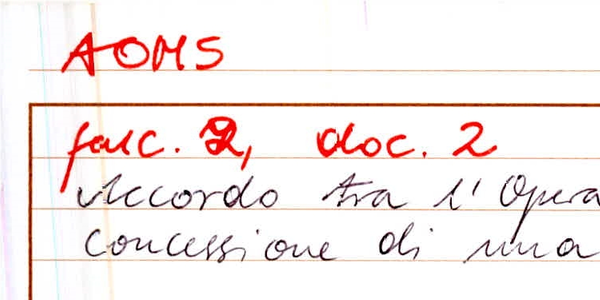 AOMS
fasc. 2, doc. 2
Accordo tra l'Opera
concessione di una